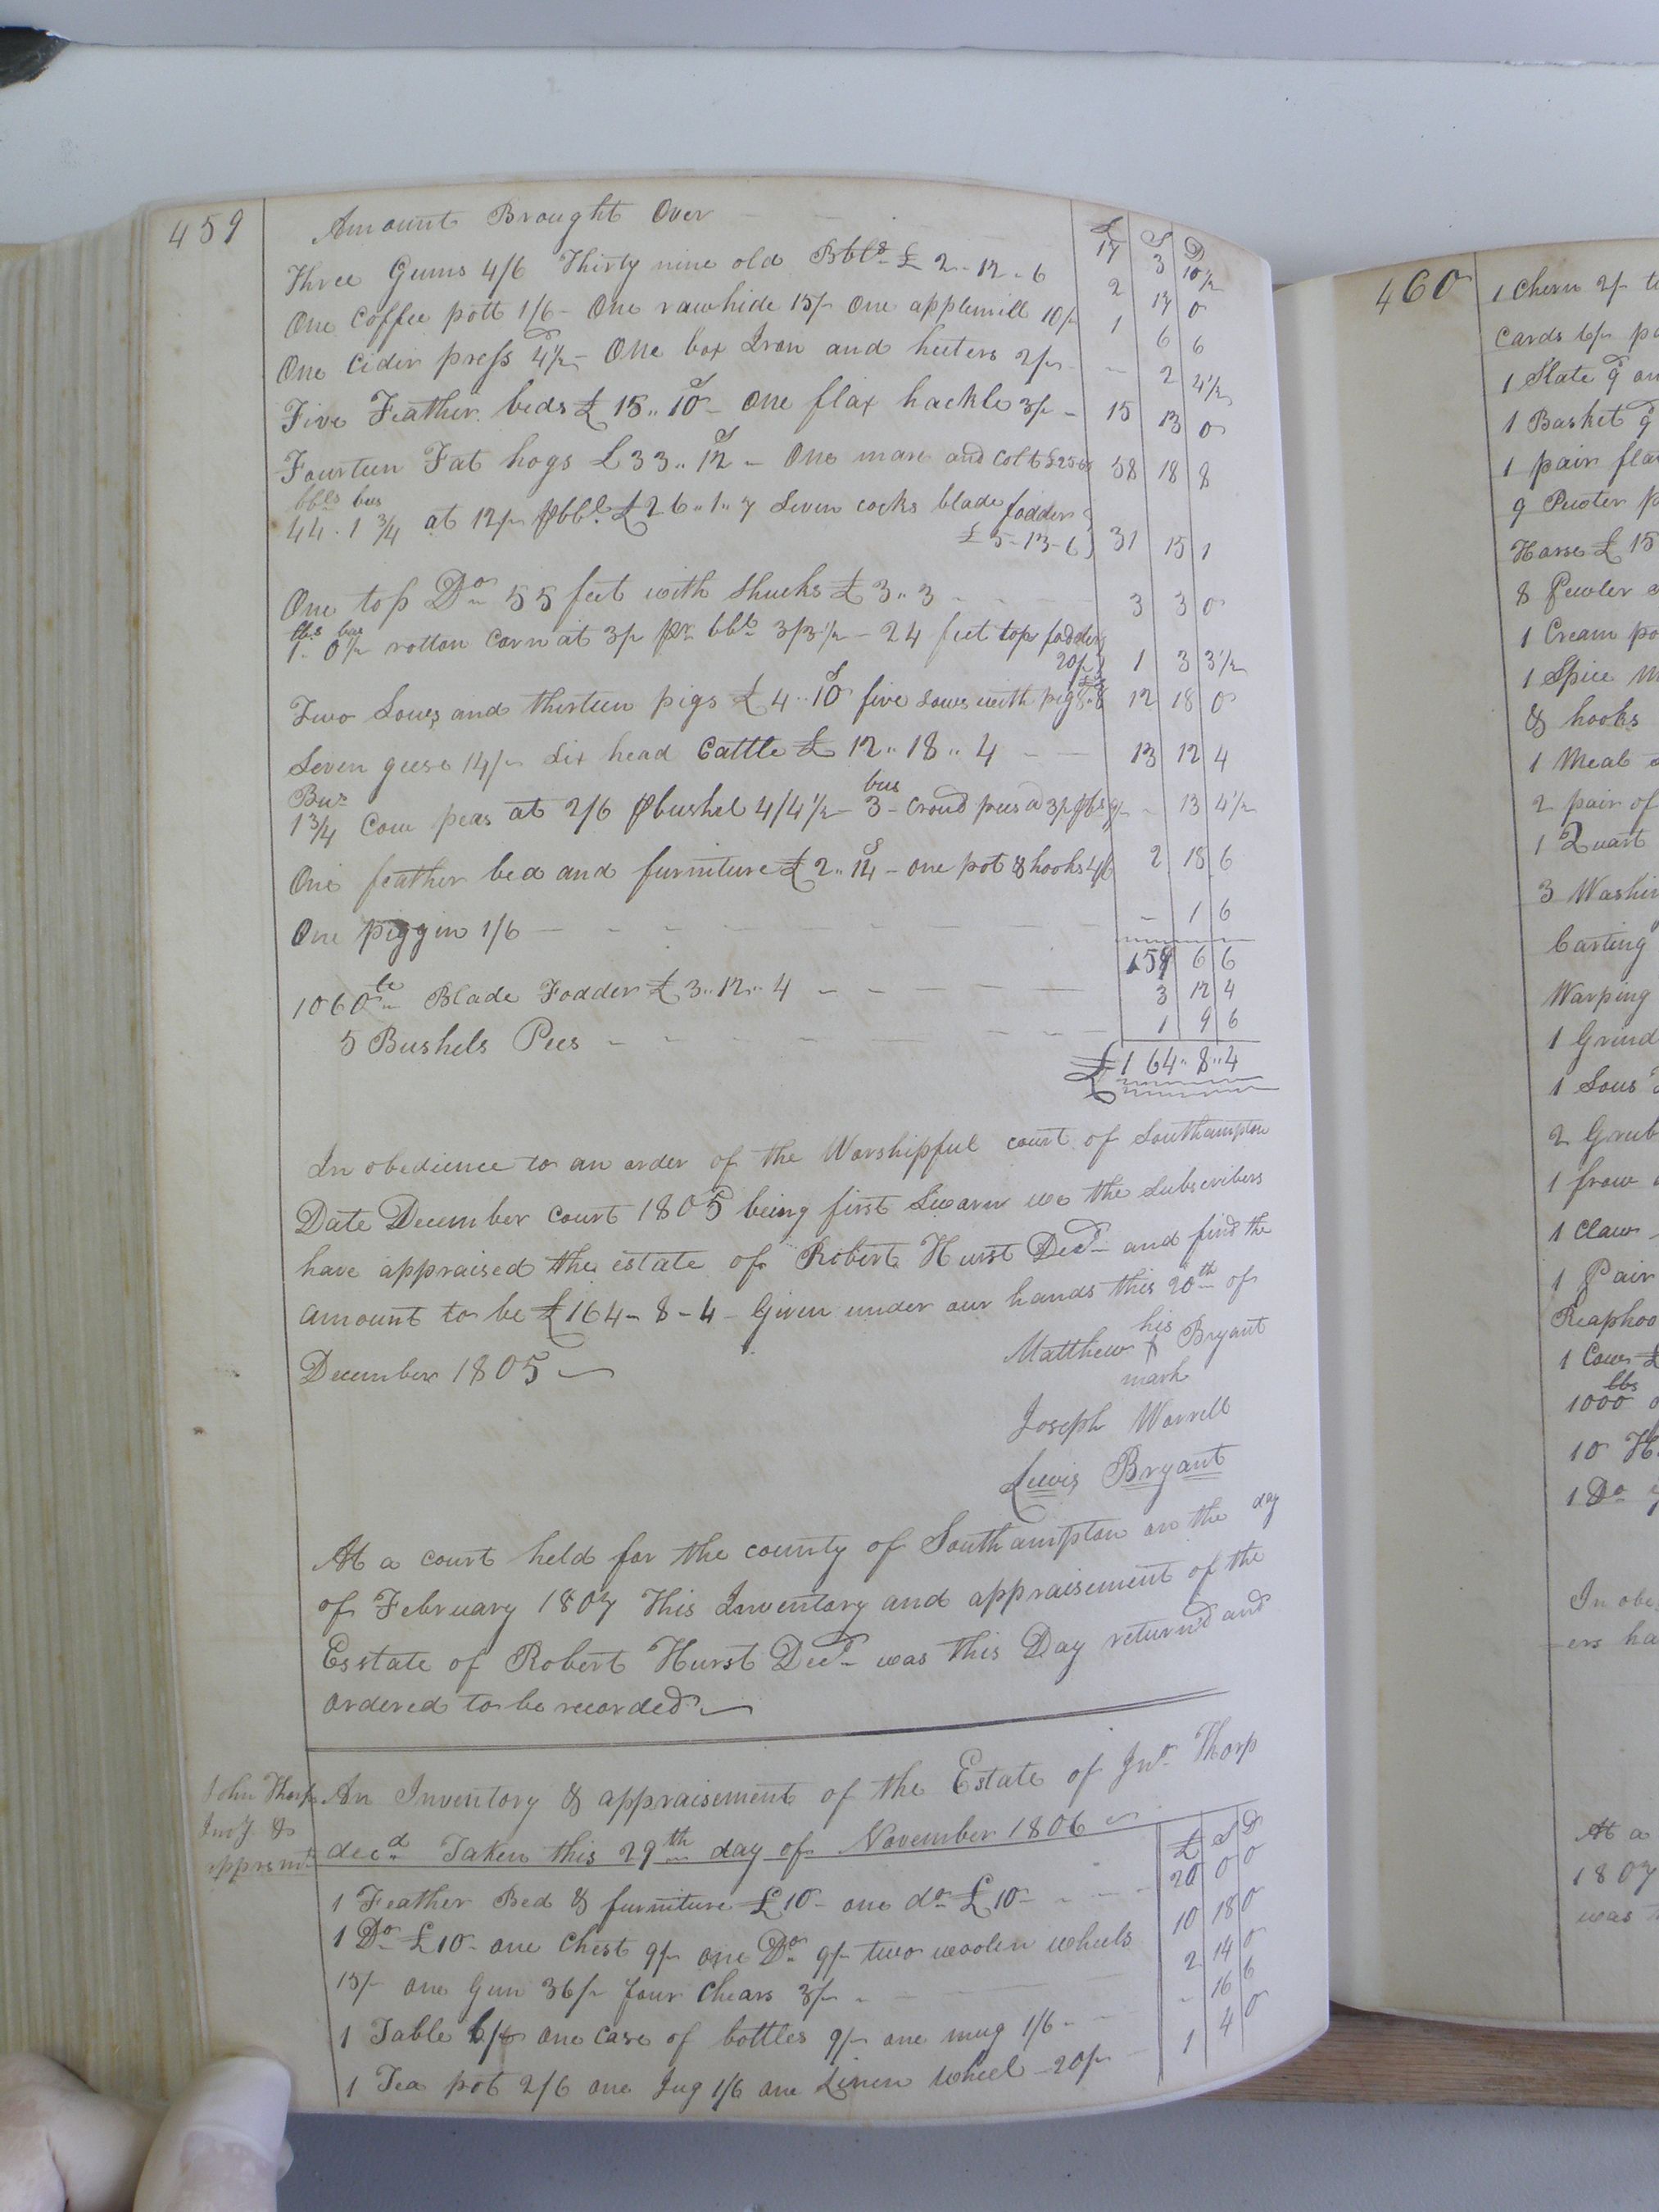 459
Amount Brought Over
£ S D
17 3 10½
Three Gums 4/6 Thirty nine old Bbls £ 2-12-6 2 17 0
One Coffee pott 1/6 - One rawhide 15/- One applemill 10/- 1 6 6
One Cider press 4½d - One box Iron and heeters 2/- - 2 4½
Five Feather beds £ 15..10s - One flax hackle 3/- 15 13 0
Fourteen Fat hogs £33..12s - One mare and Colt £25-6s 58 18 8
bbls bus
44.1¾ at 12/- ⅌ bbl. £26..1..7 Seven cocks blade fodder
£5-13-6 31 15 1
One top Do 55 feet with Shucks £3..3 3 3 0
bbs bus
1. 0½ rotton Corn at 3/- pr bbl 3/3½ - 24 feet top fodder
20/- 1 3 3½
Two Sows and thirteen pigs £4..10s five Sows with pigs £8..8 12 18 0
Seven geese 14/- Six head Cattle £12..18..4 13 12 4
Bus bus
1¾ Cow peas at 2/6 ⅌ bushel 4/4½ - 3 - Croud pees a 3/- ⅌ bs 9/- - 13 4½
One feather bed and furniture £2..14s - one pot & hooks 4/6 2 18 6
One piggin 1/6 - 1 6
159 6 6
1060 lb Blade Fodder £3..12..4 3 12 4
5 Bushels Pees 1 9 6
£164..8..4
In obedience to an order of the Worshipful court of Southampton
Date December Court 1805 being first Sworn we the Subscribers
have appraised the estate of Robert Hurst Decd and find the
amount to be £164-8-4 Given under our hands this 20th of
December 1805
his
Matthew X Bryant
mark
Joseph Worrell
Lewis Bryant
At a court held for the county of Southampton on the day
of February 1807 This Inventory and appraisement of the
Esstate of Robert Hurst Decd was this Day returnd and
ordered to be recorded
John Thorp
Invy. &
apprsmt
An Inventory & appraisement of the Estate of Jno. Thorp
decd Taken this 29th day of November 1806
£ S D
1 Feather Bed & furniture £10 - one do £10 - 20 0 0
1 Do £10 - one Chest 9/- one Do 9/- two woolen wheels 10 18 0
15/- one Gun 36/- four Chears 3/- 2 14 0
1 Table 6/- one case of bottles 9/- one mug 1/6 - 16 6
1 Tea pot 2/6 one Jug 1/6 one Linen wheel 20/- 1 4 0
460
1 Chern 2/-
Cards 6/-
1 Slate
1 Basket
1 pair
9 Pewter
Horse £15
8 Pewter
1 Cream
1 Spice
& hooks
1 Meal
2 pair of
1 Quart
3
Carting
Warping
1
1 Sows
2
1 frow
1 Claw
1 Pair
1 Cow £
lbs
1000
10
1 Do
In
ers
At a
1807
was